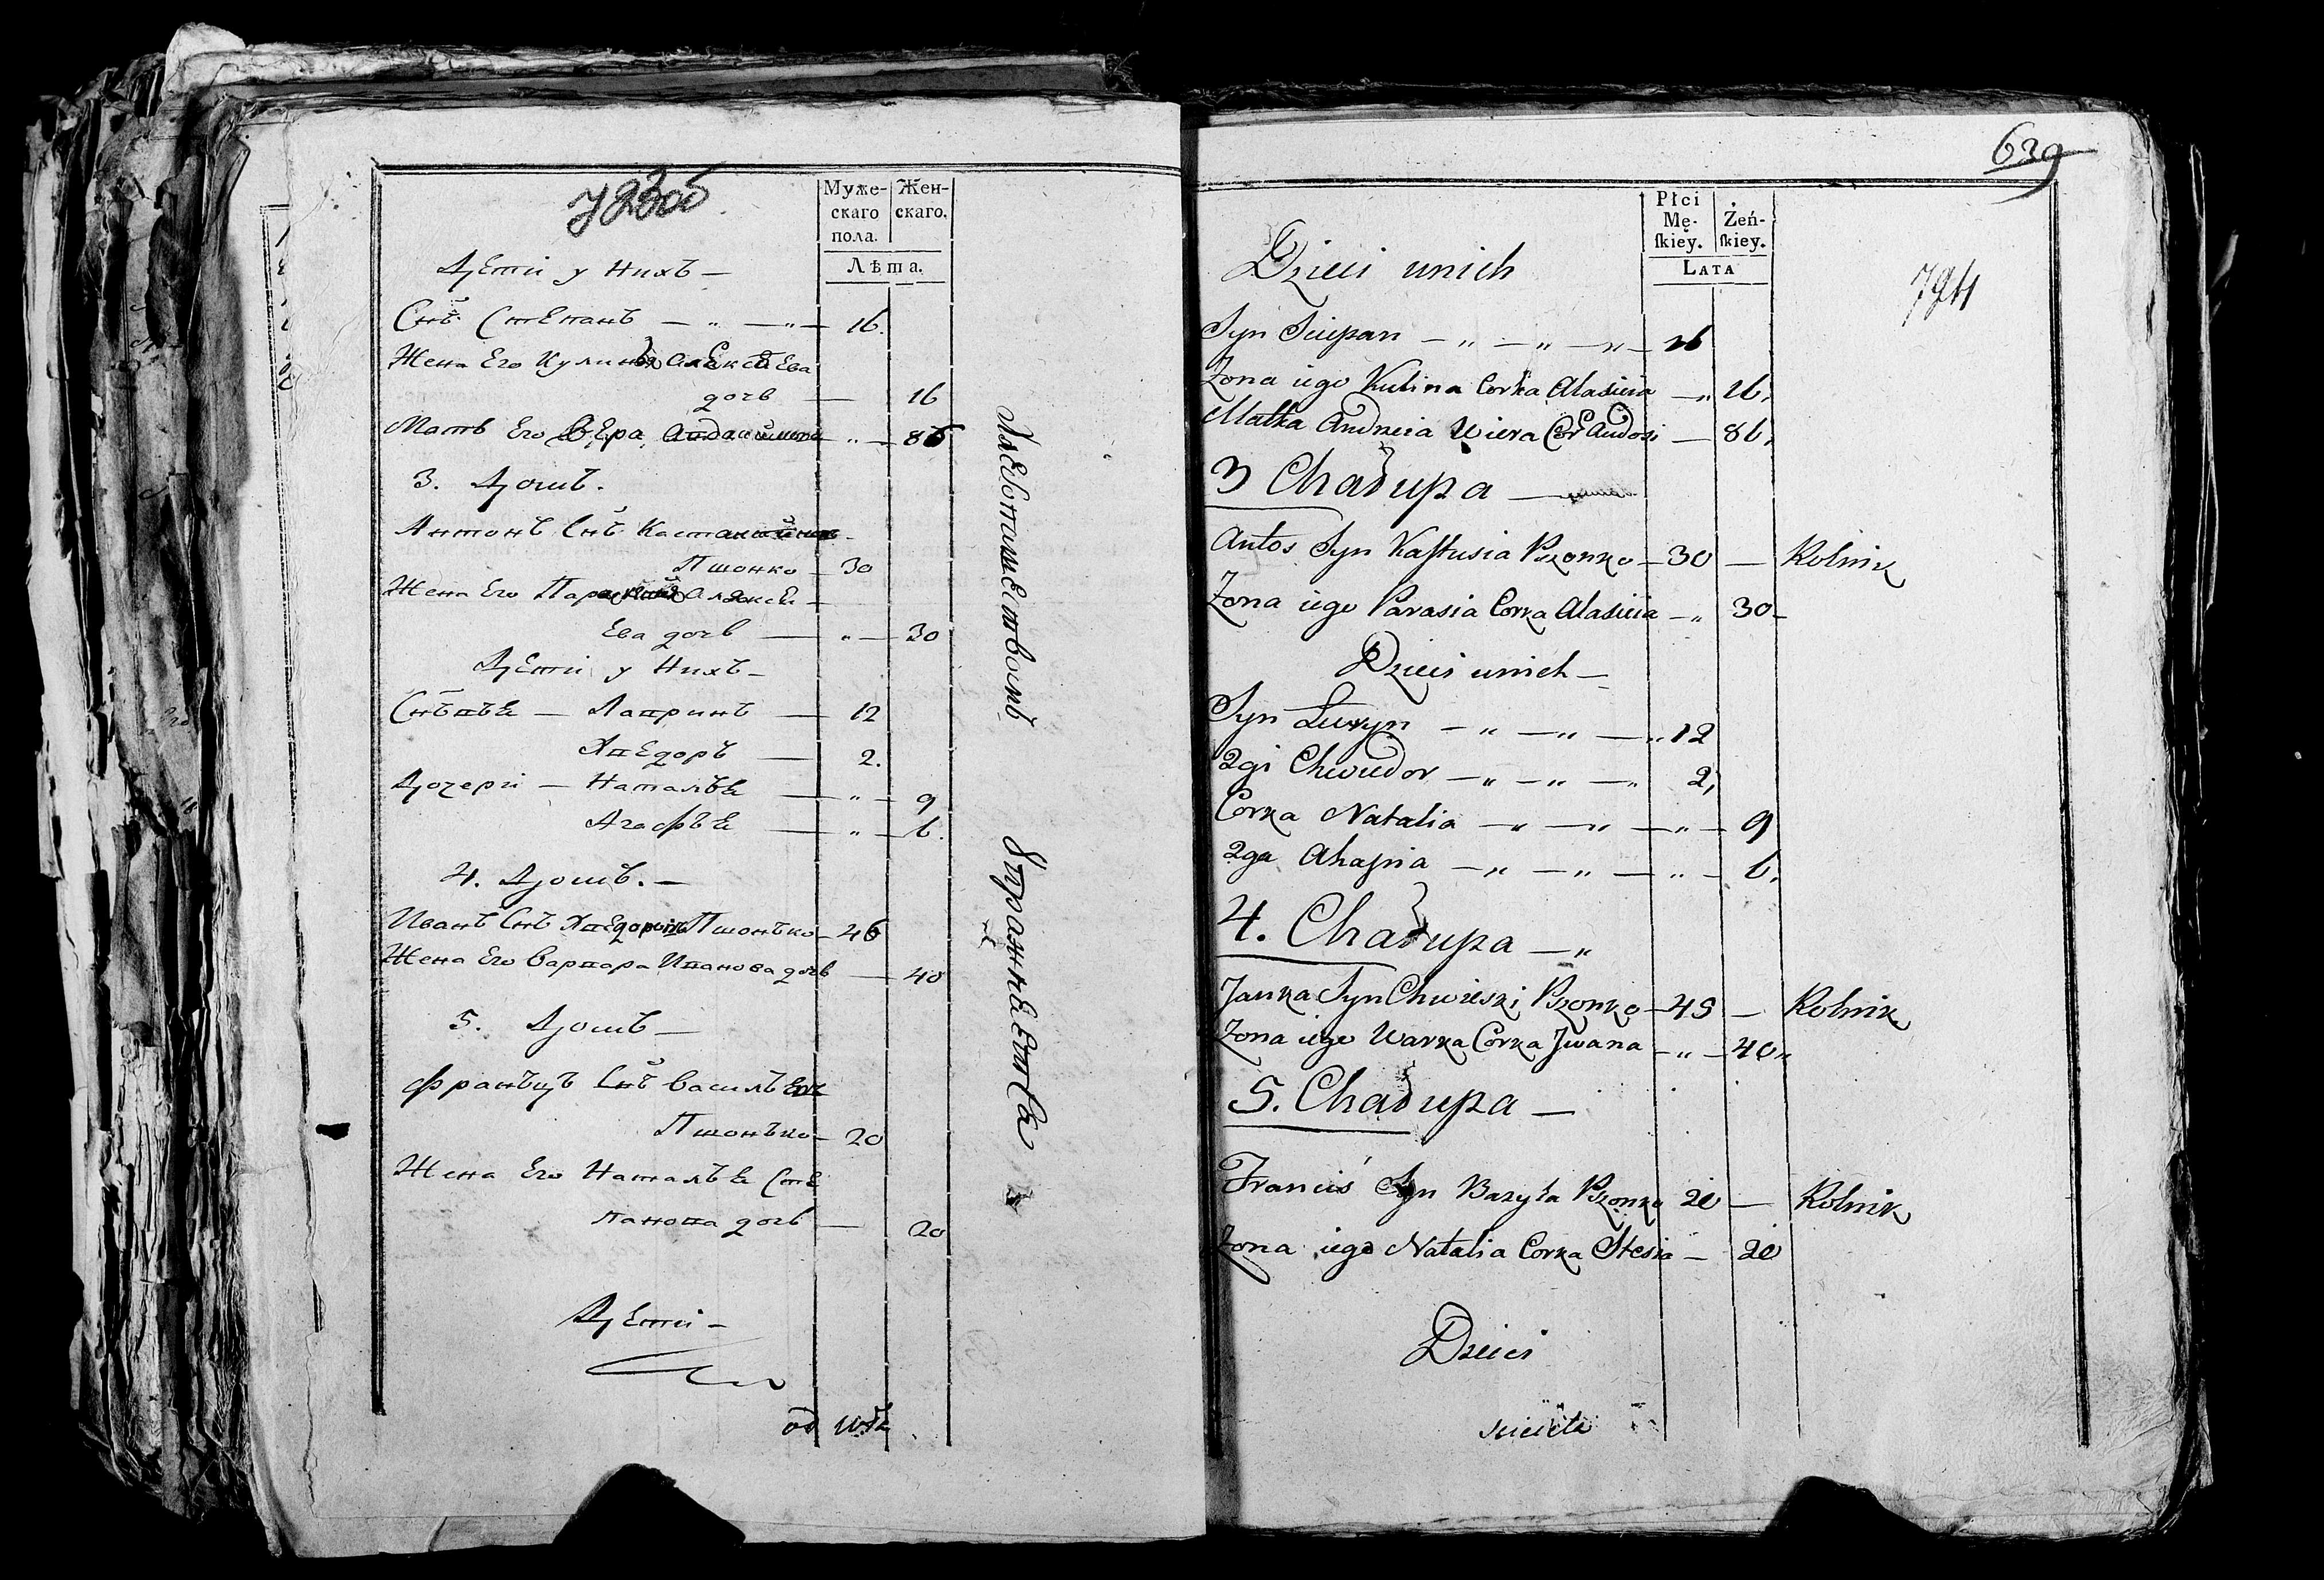 793об
Муже-
скаго
пола.
Жен-
скаго.
Лѣта.
Дети у Нихъ —
Снъ Степанъ — „ — „ — 16.
Жена Его Кулина Алексеева
дочь — 16
Мать Его Вера — „ — 86
3. Домъ.
Антонъ Снъ
Пшонко — 30
Жена Его Алексе
Ева дочь — „ — 30
Дети у Нихъ —
— Лавринъ — 12
Хведоръ — 2.
Дочери — Наталья — „ — 9
Агафья — „ — 6.
4. Домъ. —
Иванъ Снъ Пшонько — 46
Жена Его Варвара Иванова дочь — 40
5. Домъ —
Францъ Снъ Васильевъ
Пшонько — 20
Жена Его Наталья Сте
панова дочь — 20
Дети —
Хлебопашествомъ
Упражняется
639
Płci
Mę-
ſkiey.
Żeń-
ſkiey.
LATA
794
Dzieci unich
Syn Sciepan — „ — „ — „ — 16
Zona iego Kulina Corka Alasieia — „ 16,
Matka Andreia Wiera Cor Audosi — 86,
3 Chałupa —
Antos Syn Kaſtusia Pszonko — 30 — Rolnik
Zona iego Parasia Corka Alasieia — „ 30 —
Dzieci unich —
Syn Ławryn — „ — „ — „ 12
2gi Chwiedor — „ — „ — „ 2,
Corka Natalia — „ — „ — „ — 9
2ga Ahafia — „ — „ — „ — 6,
4. Chałupa — „
Janka Syn Chwieski Pszonko — 45 — Rolnik
Zona iego Warka Corka Jwana — „ — 40 „
5. Chałupa —
Franciś Syn Bazyla Pszonko 20 — Rolnik
Zona iego Natalia Corka Stesia — 20
Dzieci